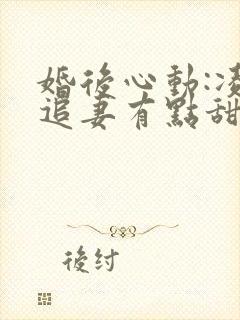 婚後心動:凌
追妻有點甜
後紂